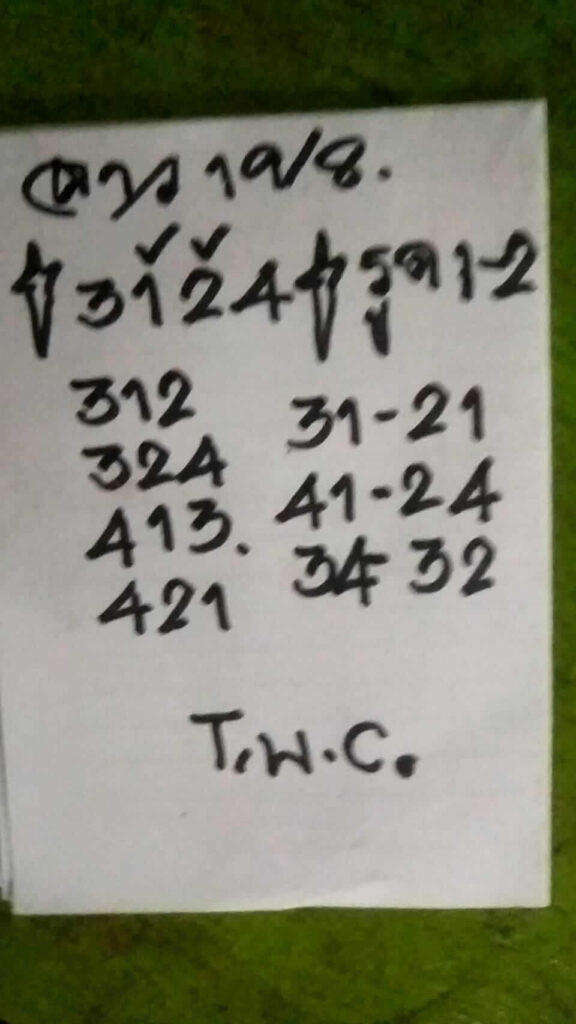 ลาว 19/8.
3124 รูด 1-2
312 31-21
324 41-24
413. 34-32
421
T.W.C.